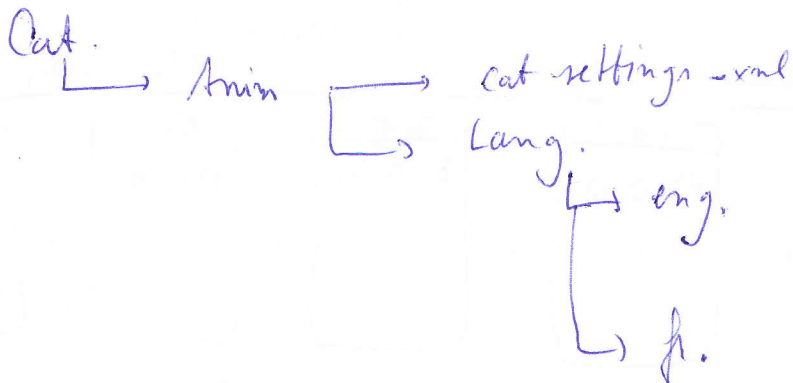 Cat.
Anim cat-settings-xml
Lang.
eng.
fr.